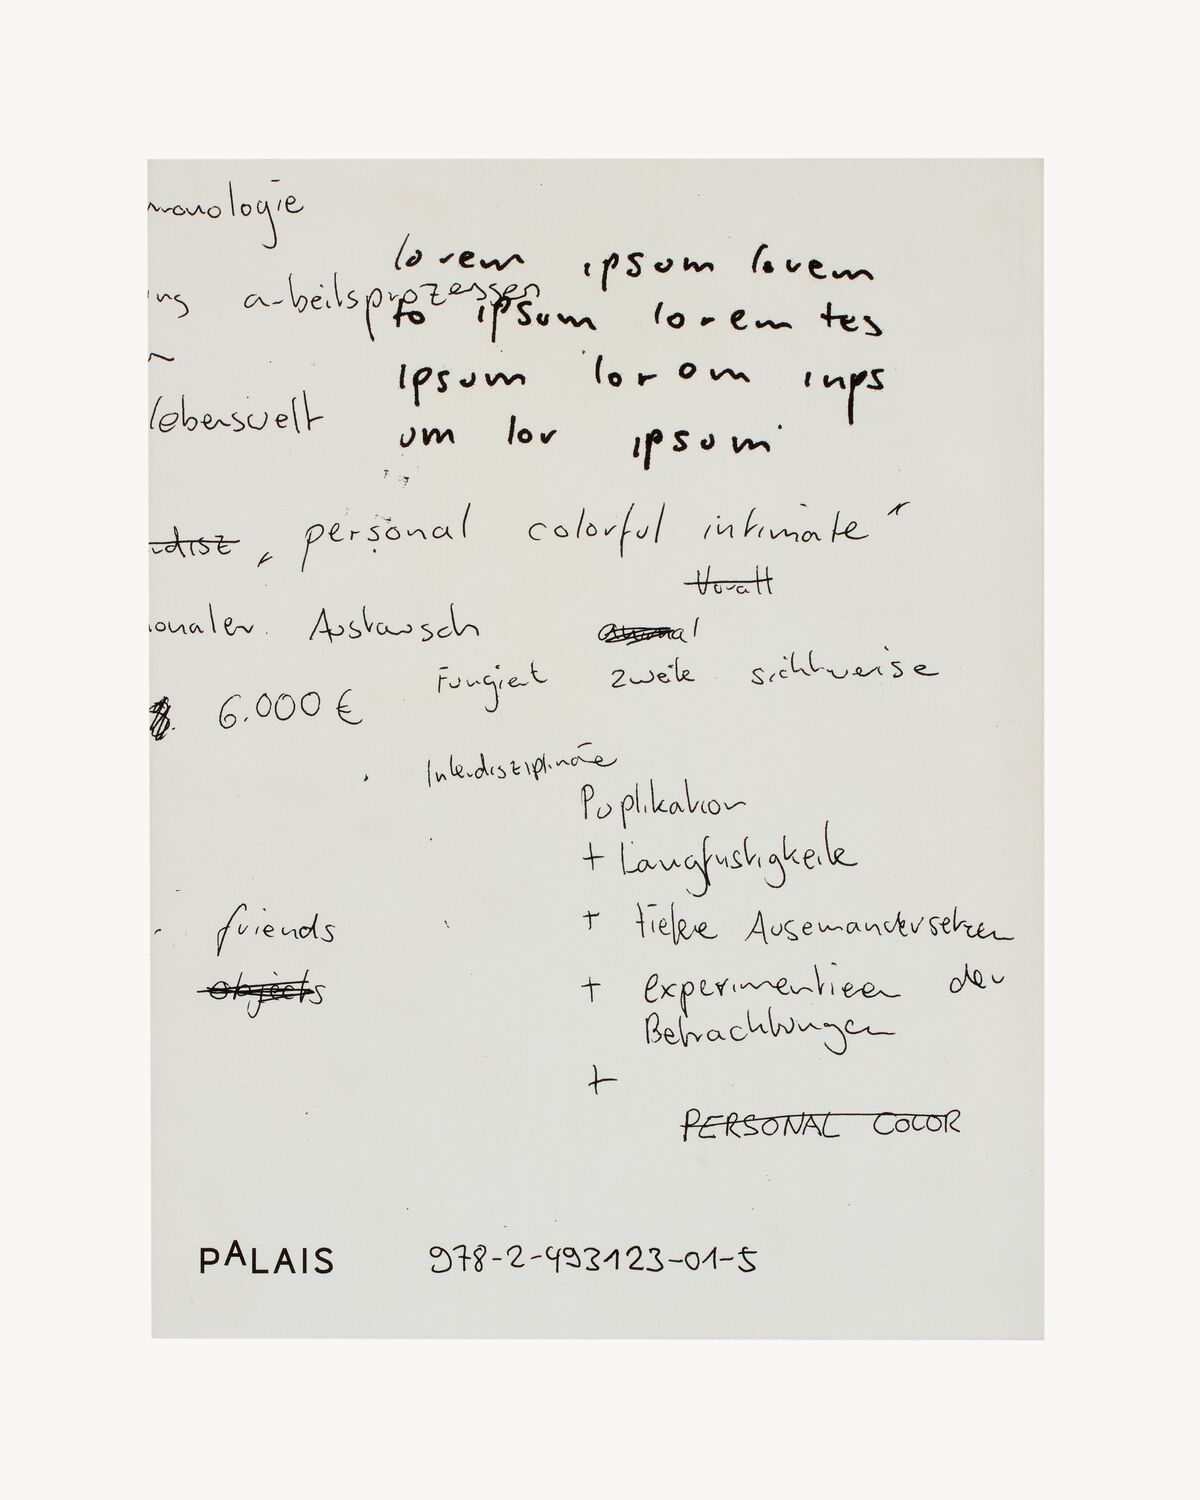 ronologie
lorem ipsum lorem
ng arbeitsprozessen
to ipsum lorem tes
ipsum lorom inps
lebenswelt
um lor ipsum
disz „ personal colorful intimate "
onaler Austausch
Fungiert zweite sichtweise
6.000 €
Interdisziplinäre
Puplikation
+ Langfristigkeite
friends
+ tiefere Auseinandersetzen
objects
+ experimentieren der
Betrachtungen
+
PERSONAL COLOR
PALAIS 978-2-493123-01-5